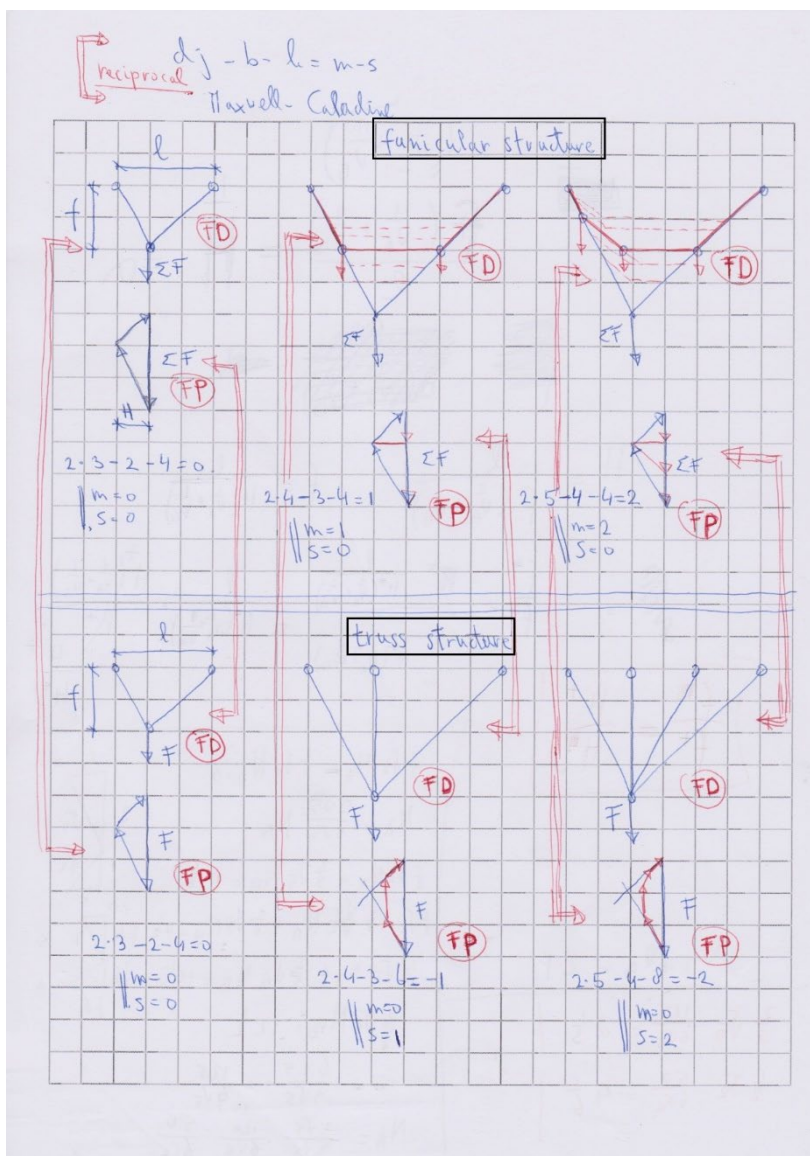 dj - b - k = m-s
reciprocal
Maxwell - Caladine
funicular structure
l
f
FD
ΣF
ΣF
FP
H
2·3-2-4=0
m=0
s=0
FD
ΣF
ΣF
FP
2·4-3-4=1
m=1
s=0
FD
ΣF
ΣF
FP
2·5-4-4=2
m=2
s=0
truss structure
l
f
FD
F
F
FP
2·3-2-4=0
m=0
s=0
FD
F
F
FP
2·4-3-6=-1
m=0
s=1
FD
F
F
FP
2·5-4-8=-2
m=0
s=2